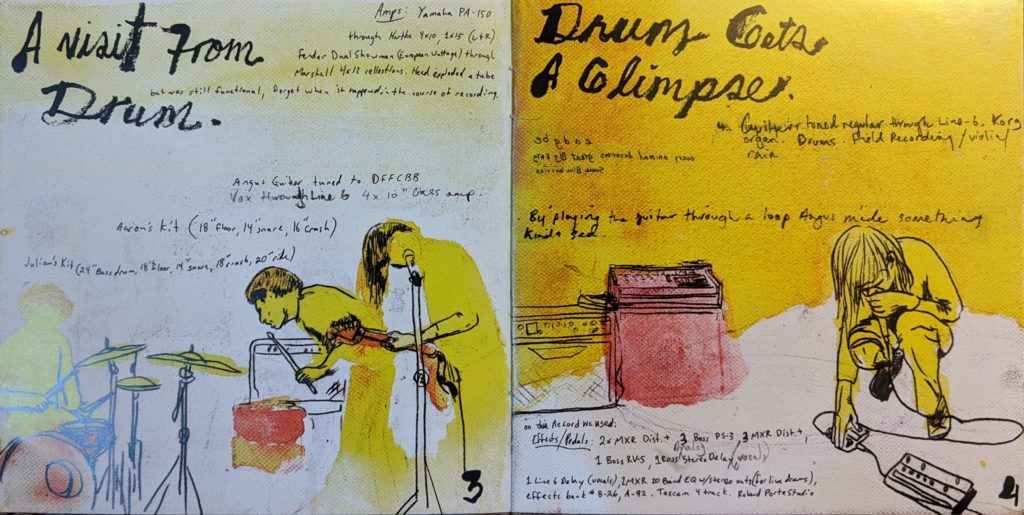 A visit From
Drum.
Amps: Yamaha PA-150
through Hartke 4x10, 1x15 (L+R)
Fender Dual Showman (European Wattage) through
Marshall 4x12 cellestions. Head exploded a tube
but was still functional, forget when it happened in the course of recording.
Angus Guitar tuned to DFFCBB
Vox through Line 6 4x10" Bass amp.
Aaron's Kit (18" floor, 14" snare, 16" crash)
Julian's Kit (24" Bass drum, 18" floor, 14" snare, 18" crash, 20" ride)
3
Drum Gets
A Glimpse.
4. tuned regular through Line-6. Korg
organ. Drums. Field Recording / violin/
rain
every animal deserves great Big Ears
By playing the guitar through a loop Angus made something
kinda sad.
on this Record we used:
Effects/Pedals: 2x MXR Dist.+ 3 Boss PS-3, 3 MXR Dist.+,
1 Boss RV-5, 1 Boss Stereo Delay, Analog vocals
1 Line 6 Delay (vocals), 1 MXR 10 Band EQ w/stereo outs (for live drums),
effects bank # 8-26, A-92. Tascam 4 track. Roland PortaStudio
4